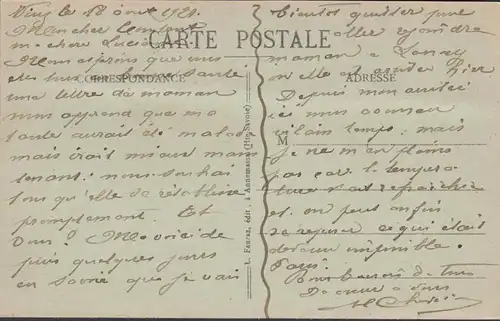 Viuz le 18 août 1921.
Mon cher
ma chère Lucie
CARTE POSTALE
CORRESPONDANCE
ADRESSE
M
L. Fauraz, édit., à Annemasse (Hte-Savoie)
Nous espérons que vous
êtes santé
une lettre de maman
nous apprend que ma
tante aurait été malade
mais était mieux main
tenant: nous souhai
tons qu'elle se rétablisse
promptement. Et
vous? Me voici de
puis quelques jours
en Savoie que je vais
bientôt quitter pour
aller rejoindre
maman à
où elle est arrivée hier
Depuis mon arrivée
ici nous avons eu
vilain temps; mais
je ne m'en plains
pas car la tempéra
ture s'est rafraîchie
et on peut enfin
se reposer ce qui était
devenu impossible à
Paris.
Bons baisers de tous
De cœur à vous